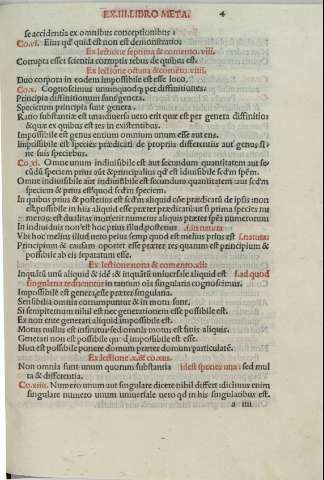 EX.III.LIBRO META. 4
se accidentia ex omnibus conceptionibus:
Co.vi. Eius qd quid est non est demonstratio
Ex lectione septima & comento.viii.
Corrupta esset scientia corruptis rebus de quibus est.
Ex lectione octaua & cometo.viiii.
Duo corpora in eodem impossibile est esse loco.
Co.x. Cognoscimus unumquodq; per diffinitiones.
Principia diffinitionum sunt genera.
Specierum principia sunt genera.
Ratio substantiæ est una: diuersa uero erit quæ est per genera diffinitio
& quæ ex quibus est res in existentibus.
Impossibile est genus entium omnium unum esse aut ens.
Impossibile est species prædicari de propriis differentiis aut genus si-
ne suis speciebus.
Co.xi. Omne unum indiuisibile est aut secundum quantitatem aut se-
cūdū speciem prius aūt & principalius qd est īdiuisibile scdm spēm.
Omne indiuisibile aut indiuisibile est secundum quantitatem aut scd'm
speciem & prius est unūquod scd'm speciem.
In quibus prius & posterius est scd'm aliquid esse prædicatū de ipsis non
est possibile in his aliquid esse præter prædicata ut si prima species nu
merorum est dualitas non est numerus aliquis præter spēs numerorum
In indiuiduis non est hoc prius illud posterius .s. in natura
Vbi hoc melius illud uero peius semper quod est melius prius est .s. natura
Principium & causam oportet esse præter res quarum est principium &
possibile ab eis separatum esse.
Ex lectione nona & comento.xii.
Inquātū unū aliquid & idē & inquātū uniuersale aliquid est .s. ad quod
singularia reducuntur in tantum oīa singularia cognoscimus.
Impossibile est genera esse præter singularia.
Sensibilia omnia corrumpuntur & in motu sunt.
Si sempiternum nihil est nec generationem esse possibile est.
Ex non ente generari aliquid impossibile est.
Motus nullus est infinitus sed omnis motus est finis alicuius.
Generari non est possibile quod impossibile est esse.
Non est possibile ponere domum præter domum particularē.
Ex lectione .x. & co.xiii.
Non omnia sunt unum quorum substantia idest species una: sed mul
ta & differentia.
Co.xiiii. Numero unum aut singulare dicere nihil differt: dicimus enim
singulare numero unum uniuersale uero qd in his singularibus est.
a iiii